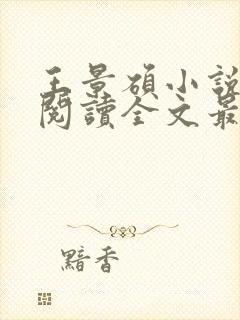 王景碩小說
閱讀全文最
黯香